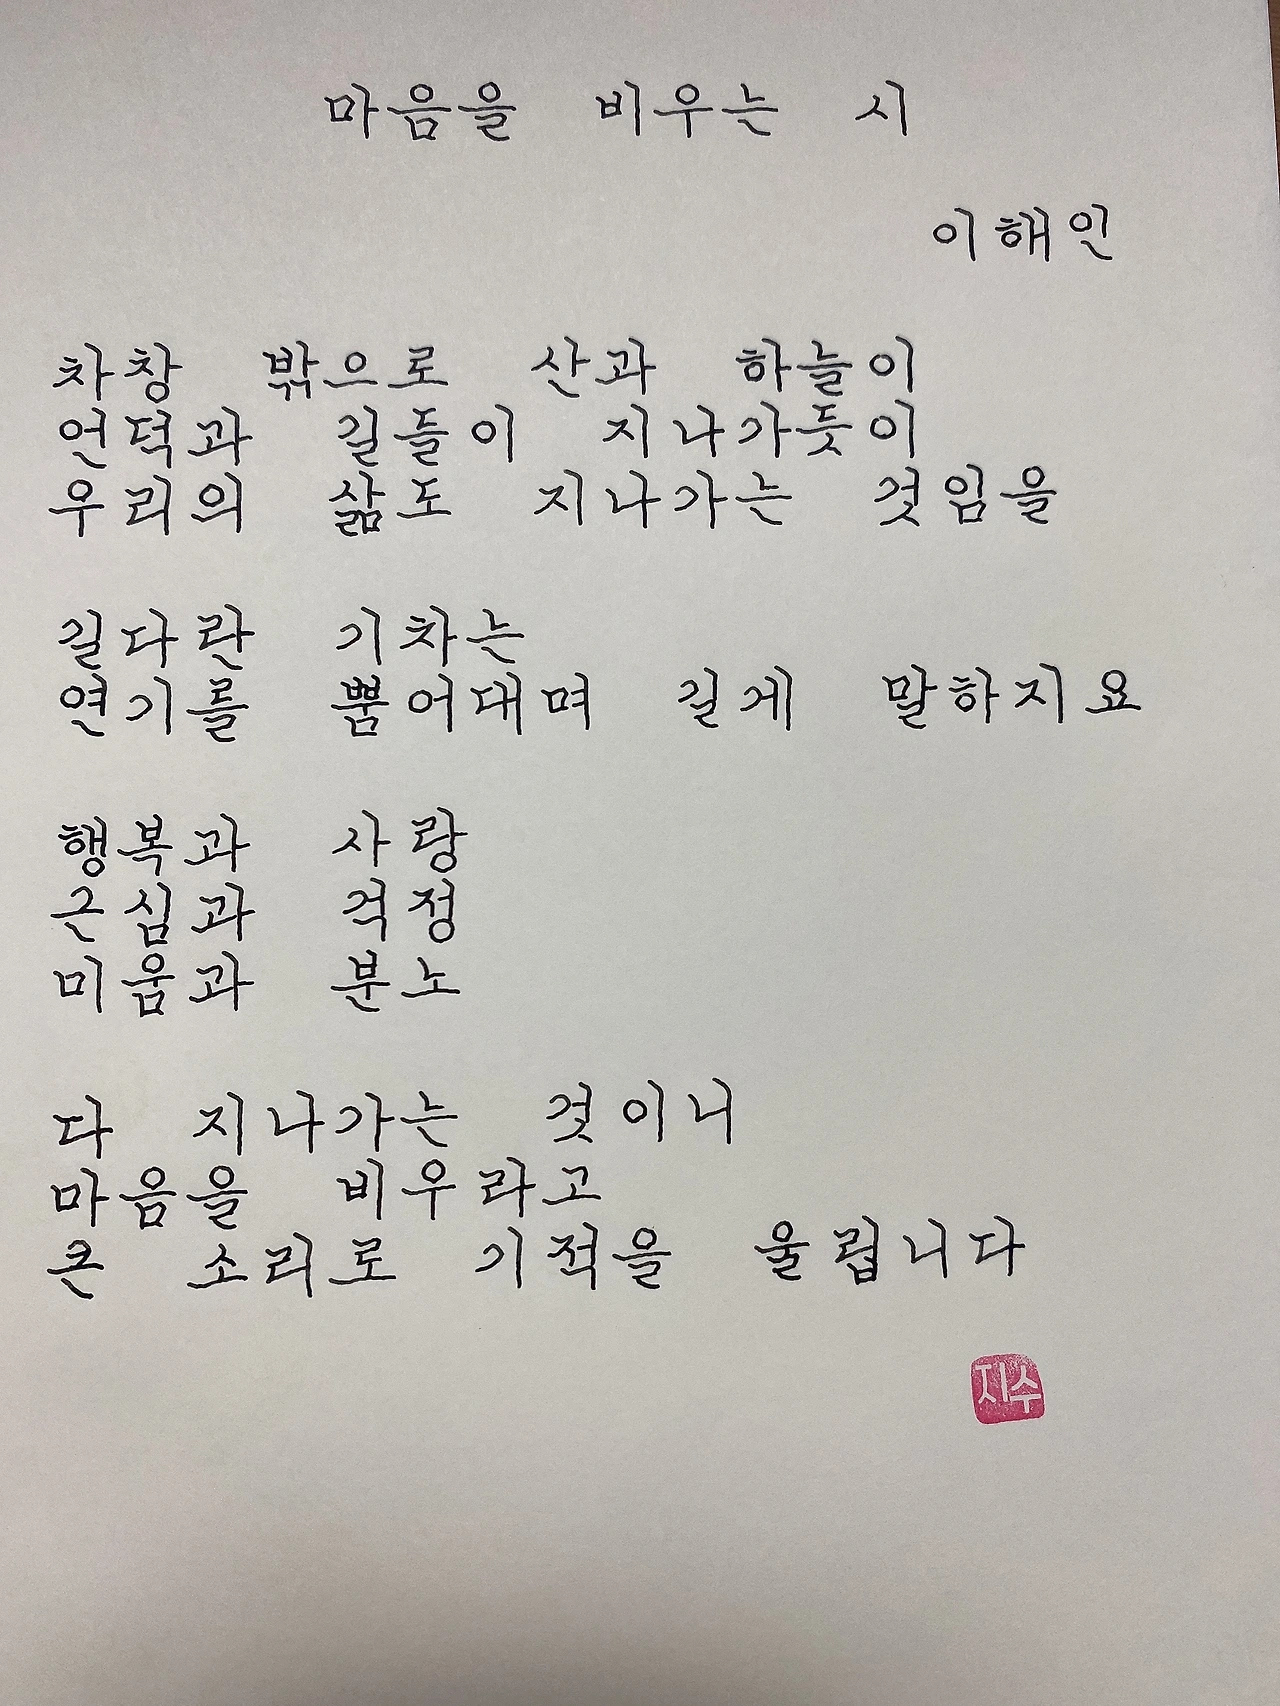 마음을 비우는 시
이해인
차창 밖으로 산과 하늘이
언덕과 길들이 지나가듯이
우리의 삶도 지나가는 것임을
길다란 기차는
연기를 뿜어대며 길게 말하지요
행복과 사랑
근심과 걱정
미움과 분노
다 지나가는 것이니
마음을 비우라고
큰 소리로 기적을 울립니다
지수